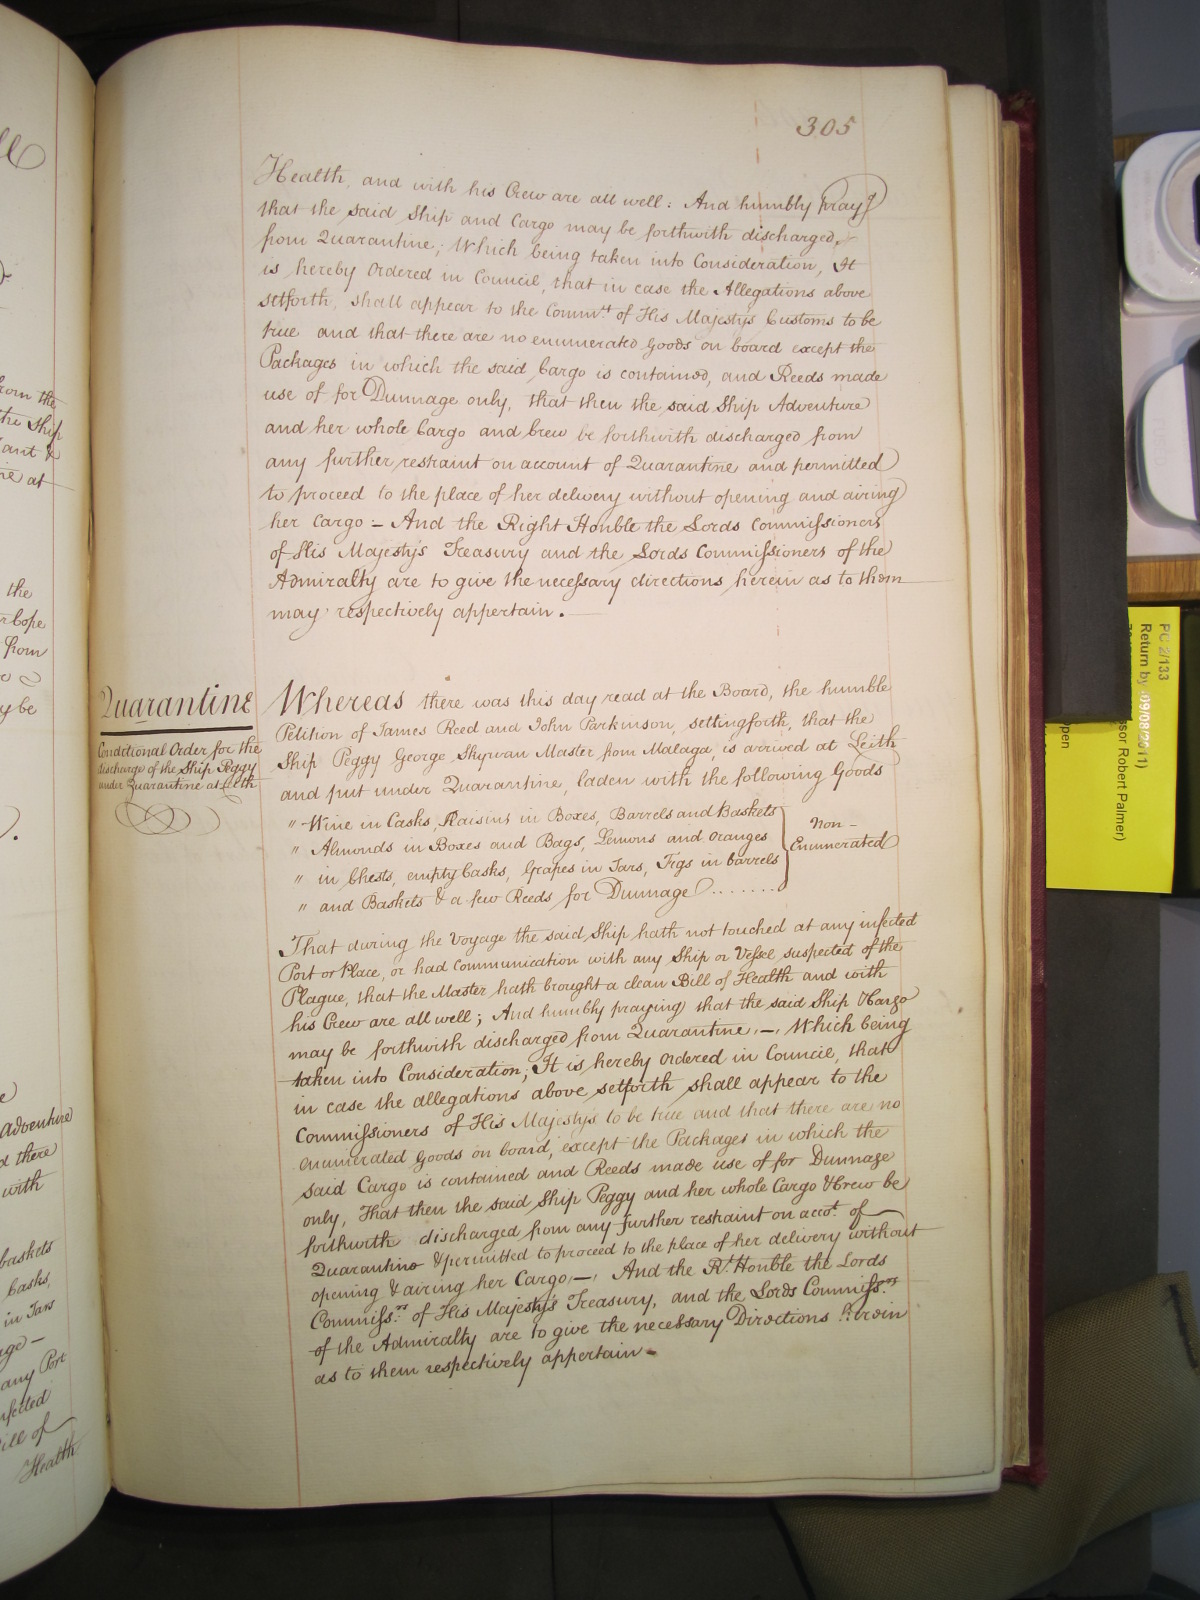 305
Health, and with his Crew are all well: And humbly pray^g
that the said Ship and Cargo may be forthwith discharged
from Quarantine; Which being taken into Consideration, It
is hereby Ordered in Council, that in case the Allegations above
setforth, shall appear to the Comm^rs of His Majesty's Customs to be
true and that there are no enumerated Goods on board except the
Packages in which the said Cargo is contained, and Reeds made
use of for Dunnage only, that then the said Ship Adventure
and her whole Cargo and Crew be forthwith discharged from
any further restraint on account of Quarantine and permitted
to proceed to the place of her delivery without opening and airing
her Cargo – And the Right Honble the Lords Commissioners
of His Majesty's Treasury and the Lords Commissioners of the
Admiralty are to give the necessary directions herein as to them
may respectively appertain.
Quarantine
Conditional Order for the
discharge of the Ship Peggy
under Quarantine at Leith
Whereas there was this day read at the Board, the humble
Petition of James Reed and John Parkinson, settingforth, that the
Ship Peggy George Skyrvan Master from Malaga, is arrived at Leith
and put under Quarantine, laden with the following Goods
" Wine in Casks, Raisins in Boxes, Barrels and Baskets
" Almonds in Boxes and Bags, Lemons and Oranges
" in Chests, empty Casks, Grapes in Jars, Figs in barrels
" and Baskets & a few Reeds for Dunnage ........
Non-
Enumerated
That during the Voyage the said Ship hath not touched at any infected
Port or Place, or had Communication with any Ship or Vessel suspected of the
Plague, that the Master hath brought a clean Bill of Health and with
his Crew are all well; And humbly praying that the said Ship & Cargo
may be forthwith discharged from Quarantine. –. Which being
taken into Consideration; It is hereby Ordered in Council, that
in case the allegations above setforth shall appear to the
Commissioners of His Majesty's to be true and that there are no
enumerated Goods on board, except the Packages in which the
said Cargo is contained and Reeds made use of for Dunnage
only, That then the said Ship Peggy and her whole Cargo & Crew be
forthwith discharged from any further restraint on acco^t. of
Quarantine & permitted to proceed to the place of her delivery without
opening & airing her Cargo, –. And the R^t. Honble the Lords
Commiss^rs of His Majesty's Treasury, and the Lords Commiss^rs
of the Admiralty are to give the necessary Directions herein
as to them respectively appertain –
from the
the Ship
at
the
from
be
Adventure
there
with
baskets
Casks,
in Jars
any Port
of
Health
PC 2/133
Return by (09/08/2011)
Professor Robert Palmer)